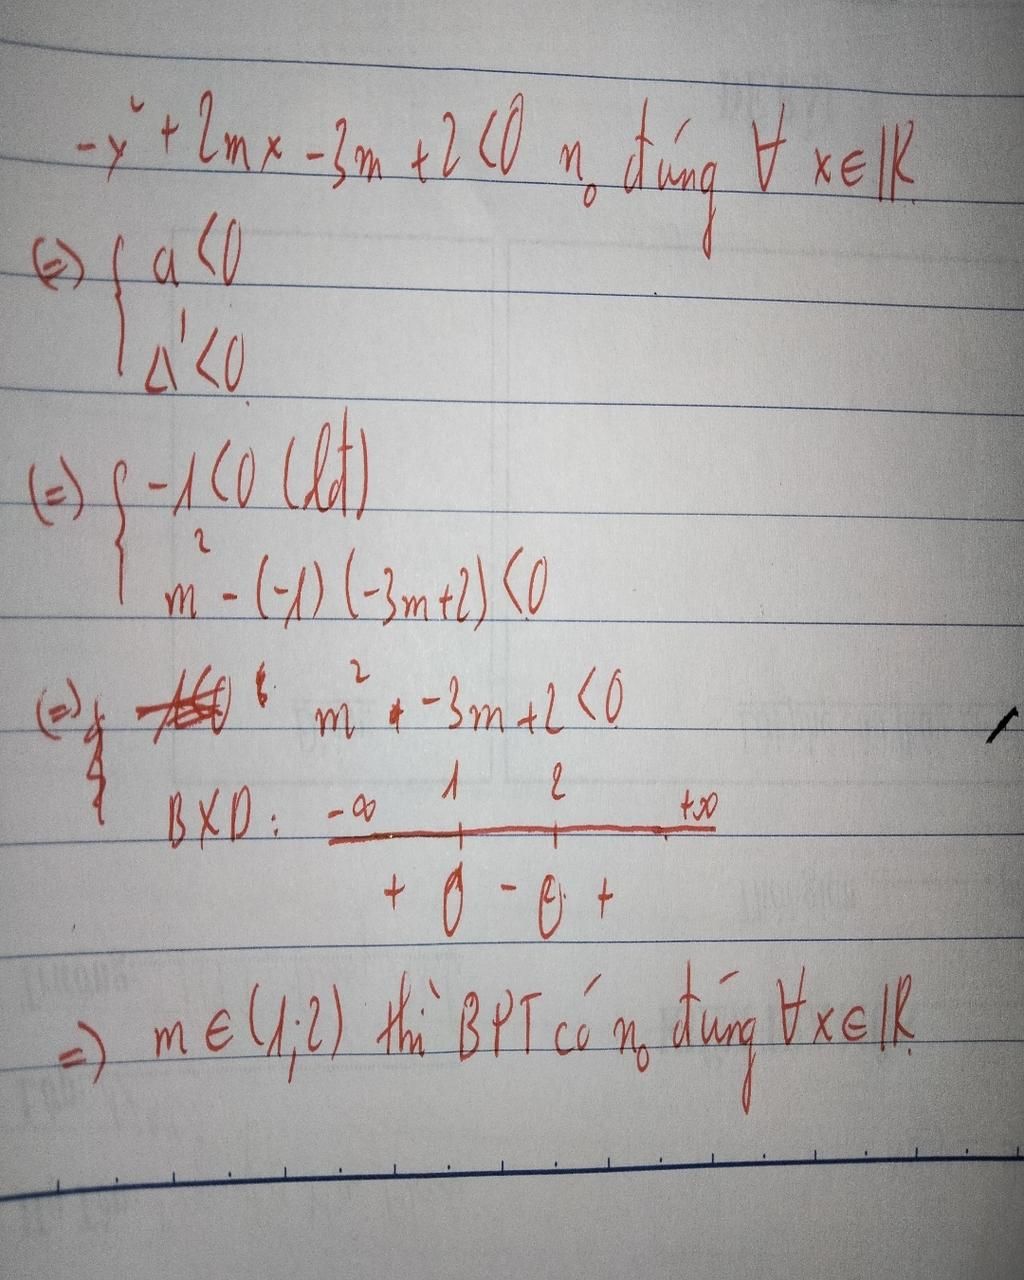 -x² + 2mx -3m +2 <0 n₀ đúng ∀ x∈ℝ
(=) { a <0
Δ' <0
(=) { -1 <0 (lđ)
m² - (-1) (-3m+2) <0
(=) { m² -3m +2 <0
BXD: -∞ 1 2 +∞
+ 0 - 0 +
=) m ∈ (1;2) thì BPT có n₀ đúng ∀x∈ℝ